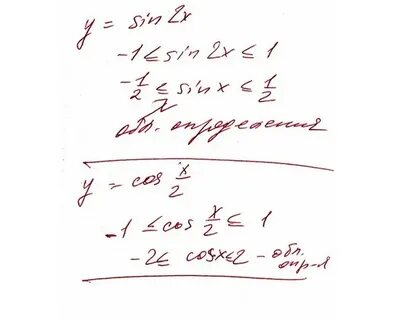 y = sin 2x
-1 ≤ sin 2x ≤ 1
-1/2 ≤ sin x ≤ 1/2
обл. определения
y = cos x/2
-1 ≤ cos x/2 ≤ 1
-2 ≤ cos x ≤ 2 - обл.
опр-я